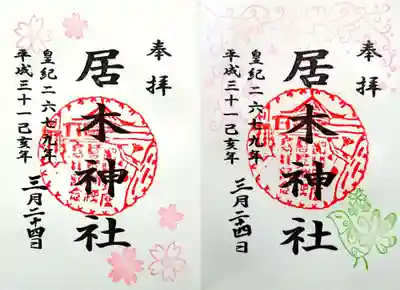 奉拝
居木神社
皇紀二六七九年
平成三十一己亥年
三月二十四日
奉拝
居木神社
皇紀二六七九年
平成三十一己亥年
三月二四日